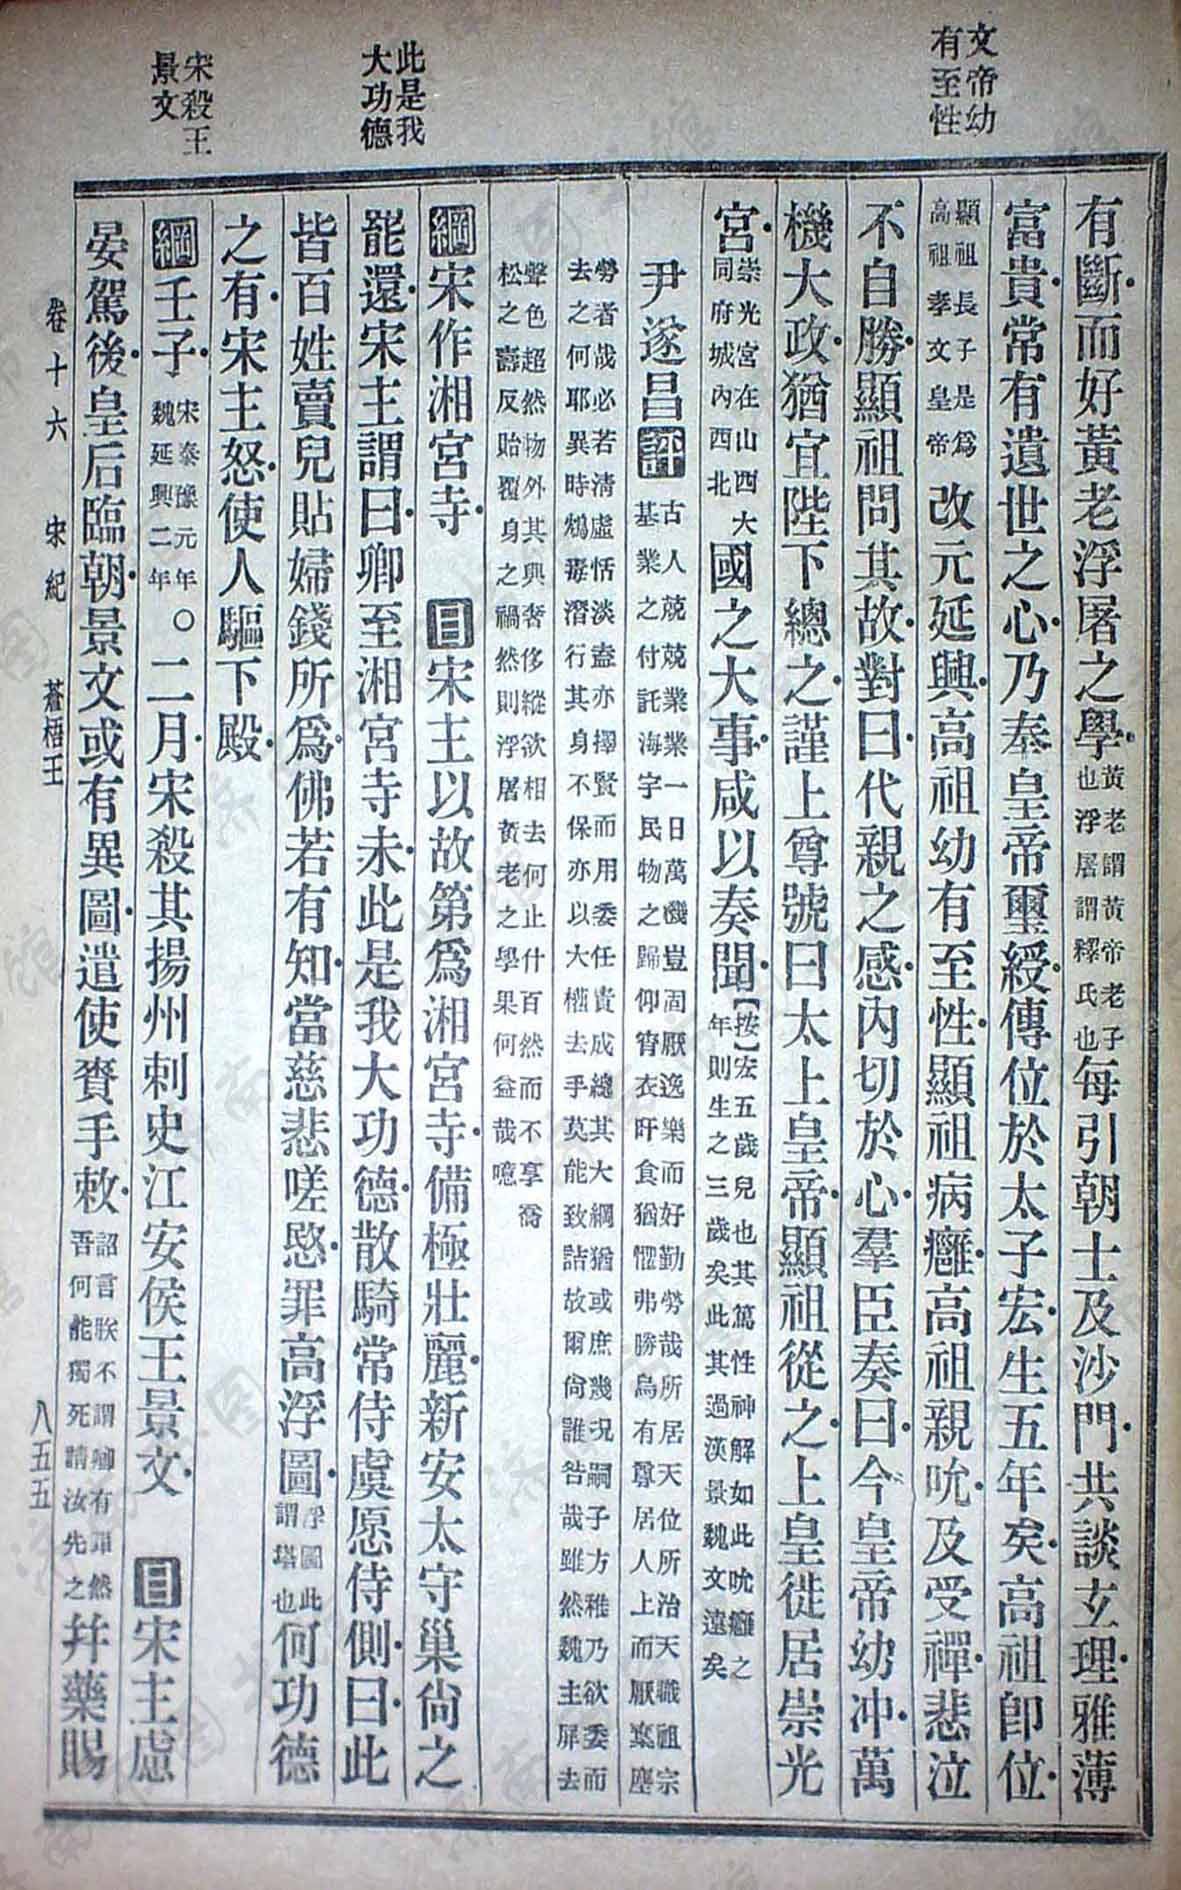 文帝幼
有至性
此是我
大功德
宋殺王
景文
有斷而好黃老浮屠之學黃老謂黃帝老子也浮屠謂釋氏也每引朝士及沙門共談玄理雅薄
富貴常有遺世之心乃奉皇帝璽綬傳位於太子宏生五年矣高祖卽位
顯祖長子是爲高祖孝文皇帝改元延興高祖幼有至性顯祖病癰高祖親吮及受禪悲泣
不自勝顯祖問其故對曰代親之感內切於心羣臣奏曰今皇帝幼冲萬
機大政猶宜陛下總之謹上尊號曰太上皇帝顯祖從之上皇徙居崇光
宮崇光宮在山西大同府城內西北國之大事咸以奏聞【按】宏五歲兒也其篤性神解如此吮癰之年則生之三歲矣此其過漢景魏文遠矣
尹遂昌評古人兢兢業業一日萬機豈固厭逸樂而好勤勞哉所居天位所治天職祖宗基業之付託海宇民物之歸仰宵衣旰食猶懼弗勝烏有尊居人上而厭棄塵
勞者哉必若淸虛恬淡盍亦擇賢而用委任責成總其大綱猶或庶幾況嗣子方稚乃欲委而去之何耶異時鴆毒潛行其身不保亦以大權去手莫能致詰故爾尙誰咎哉雖然魏主屏去
聲色超然物外其與奢侈縱欲相去何止什百然而不享喬松之壽反貽覆身之禍然則浮屠黃老之學果何益哉噫
綱宋作湘宮寺 目宋主以故第爲湘宮寺備極壯麗新安太守巢尙之
罷還宋主謂曰卿至湘宮寺未此是我大功德散騎常侍虞愿侍側曰此
皆百姓賣兒貼婦錢所爲佛若有知當慈悲嗟愍罪高浮圖浮圖此謂塔也何功德
之有宋主怒使人驅下殿
綱壬子宋泰豫元年魏延興二年○二月宋殺其揚州刺史江安侯王景文 目宋主慮
晏駕後皇后臨朝景文或有異圖遣使齎手敕詔言朕不謂卿有罪然吾何能獨死請汝先之幷藥賜
卷十六 宋紀 蒼梧王 八五五